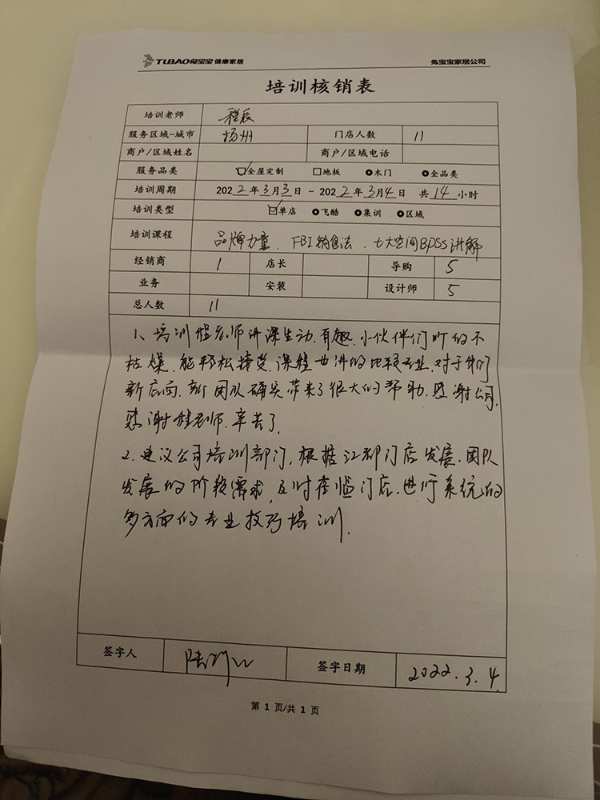 TUBAO兔宝宝 健康家居 兔宝宝家居公司
培训核销表
培训老师 程辰
服务区域-城市 扬州 门店人数 11
商户/区域姓名 商户/区域电话
服务品类 全屋定制 地板 木门 全品类
培训周期 2022年3月3日 - 2022年3月4日 共14小时
培训类型 单店 飞酷 集训 区域
培训课程 品牌力量、FBI销售法、七大空间BPSS讲解
经销商 1 店长 导购 5
业务 安装 设计师 5
总人数 11
1、培训程老师讲课生动、有趣、小伙伴们听的不
枯燥、能轻松接受、课程也讲的比较专业、对于我们
新店面、新团队确实带来了很大的帮助、感谢公司、
感谢程老师、辛苦了、
2、建议公司培训部门、根据江都门店发展、团队
发展的阶段需求、及时莅临门店、进行系统的
多方向的专业技巧培训、
签字人 签字日期 2022.3.4
第 1 页/共 1 页